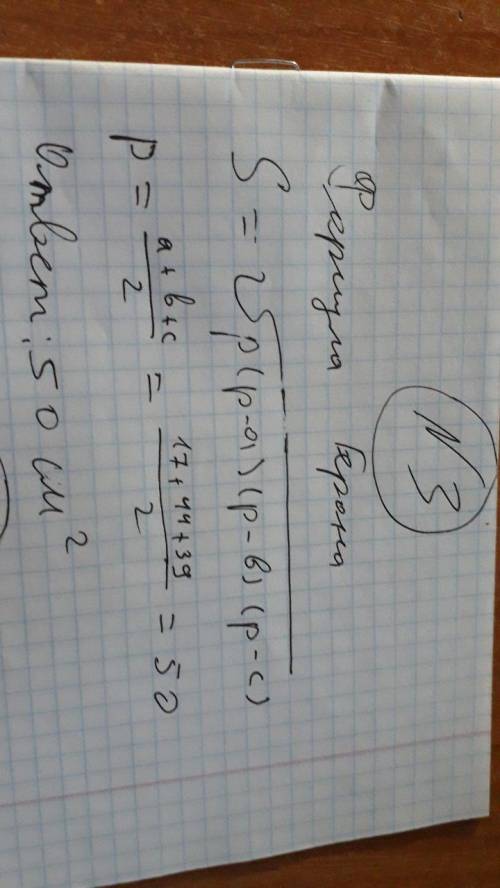 N3
Формула Герона
S = √p(p-a)(p-b)(p-c)
p = a+b+c/2 = 17+44+39/2 = 50
Ответ: 50 см²